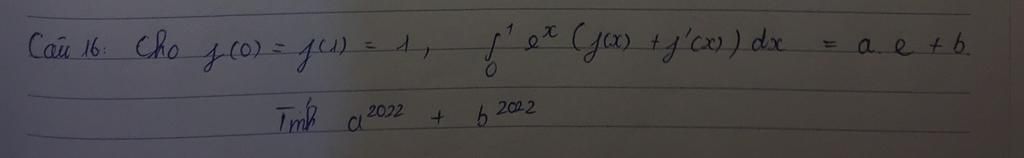 Câu 16: Cho f(0) = f(1) = 1, ∫₀¹ eˣ (f(x) + f'(x)) dx = a.e + b.
Tính a²⁰²² + b²⁰²²